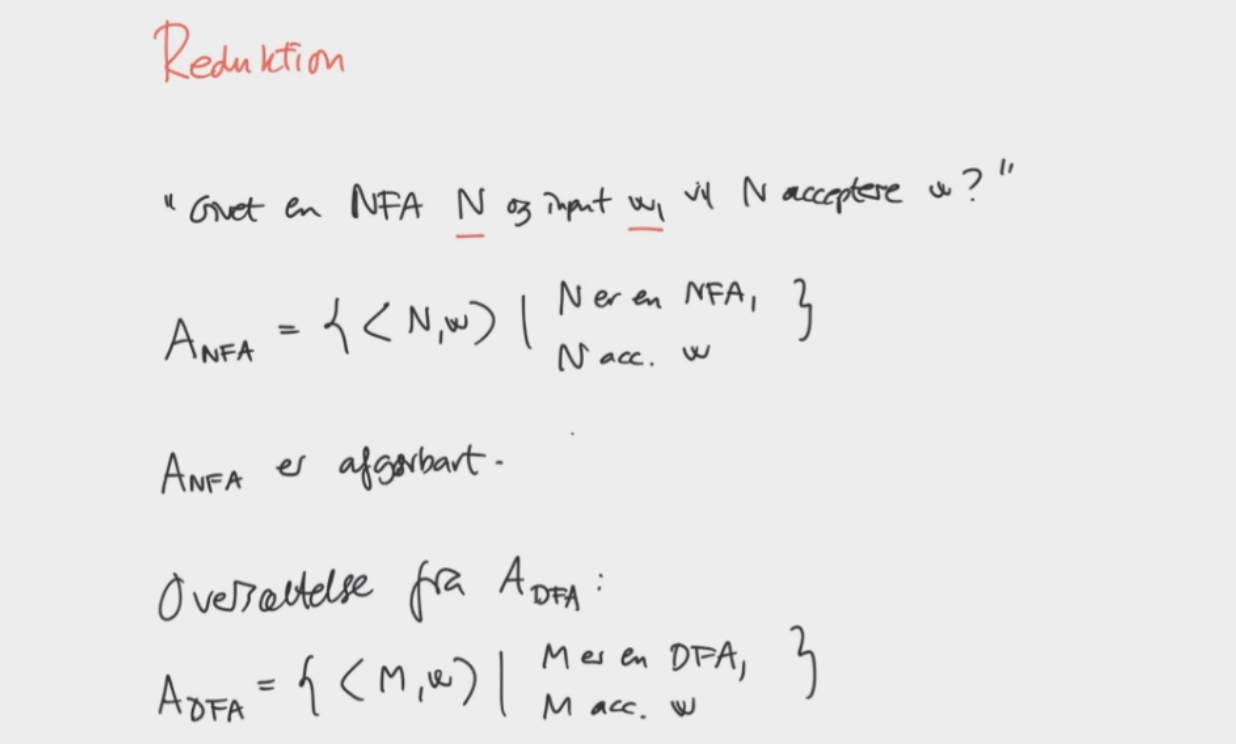 Reduktion
"Givet en NFA N og input w, vil N acceptere w?"
A_NFA = { <N,w> | N er en NFA, }
N acc. w
A_NFA er afgørbart.
Oversættelse fra A_DFA:
A_DFA = { <M,w> | M er en DFA, }
M acc. w